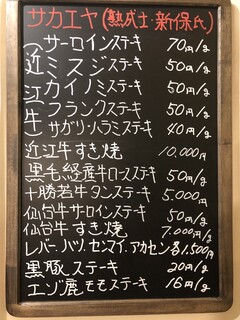 サカエヤ(熟成士・新保氏)
近江牛
サーロインステーキ 70円/g
ミスジステーキ 50円/g
カイノミステーキ 50円/g
フランクステーキ 50円/g
サガリ・ハラミステーキ 40円/g
近江牛すき焼 10,000円
黒毛経産牛ロースステーキ 50円/g
十勝若牛タンステーキ 5,000円
仙台牛サーロインステーキ 50円/g
仙台牛すき焼 7,000円/g
レバー、ハツ、センマイ、アカセン各1,500円
黒豚ステーキ 20円/g
エゾ鹿モモステーキ 16円/g